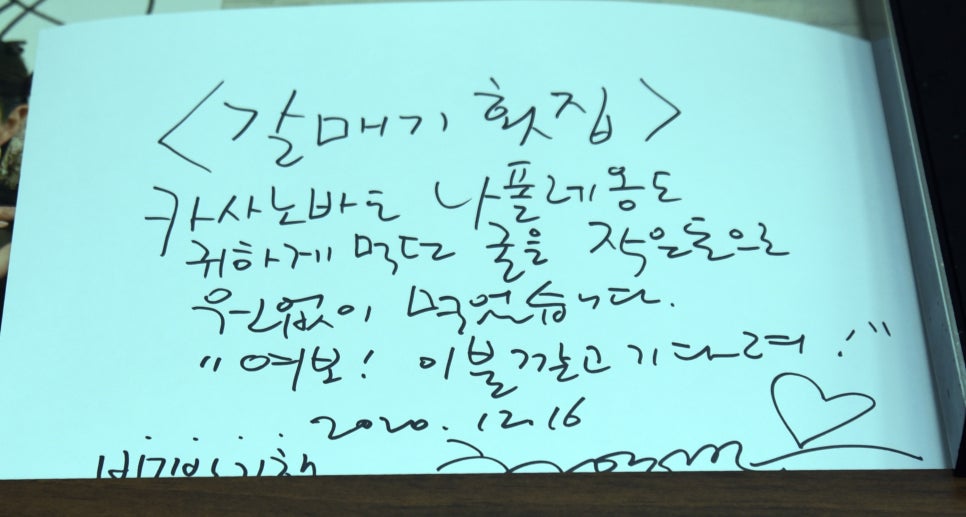 <갈매기 횟집>
카사노바도 나폴레옹도
귀하게 먹던 굴을 작은돈으로
우한없이 먹었습니다.
"여보! 이불깔고 기다려!"
2020.12.16